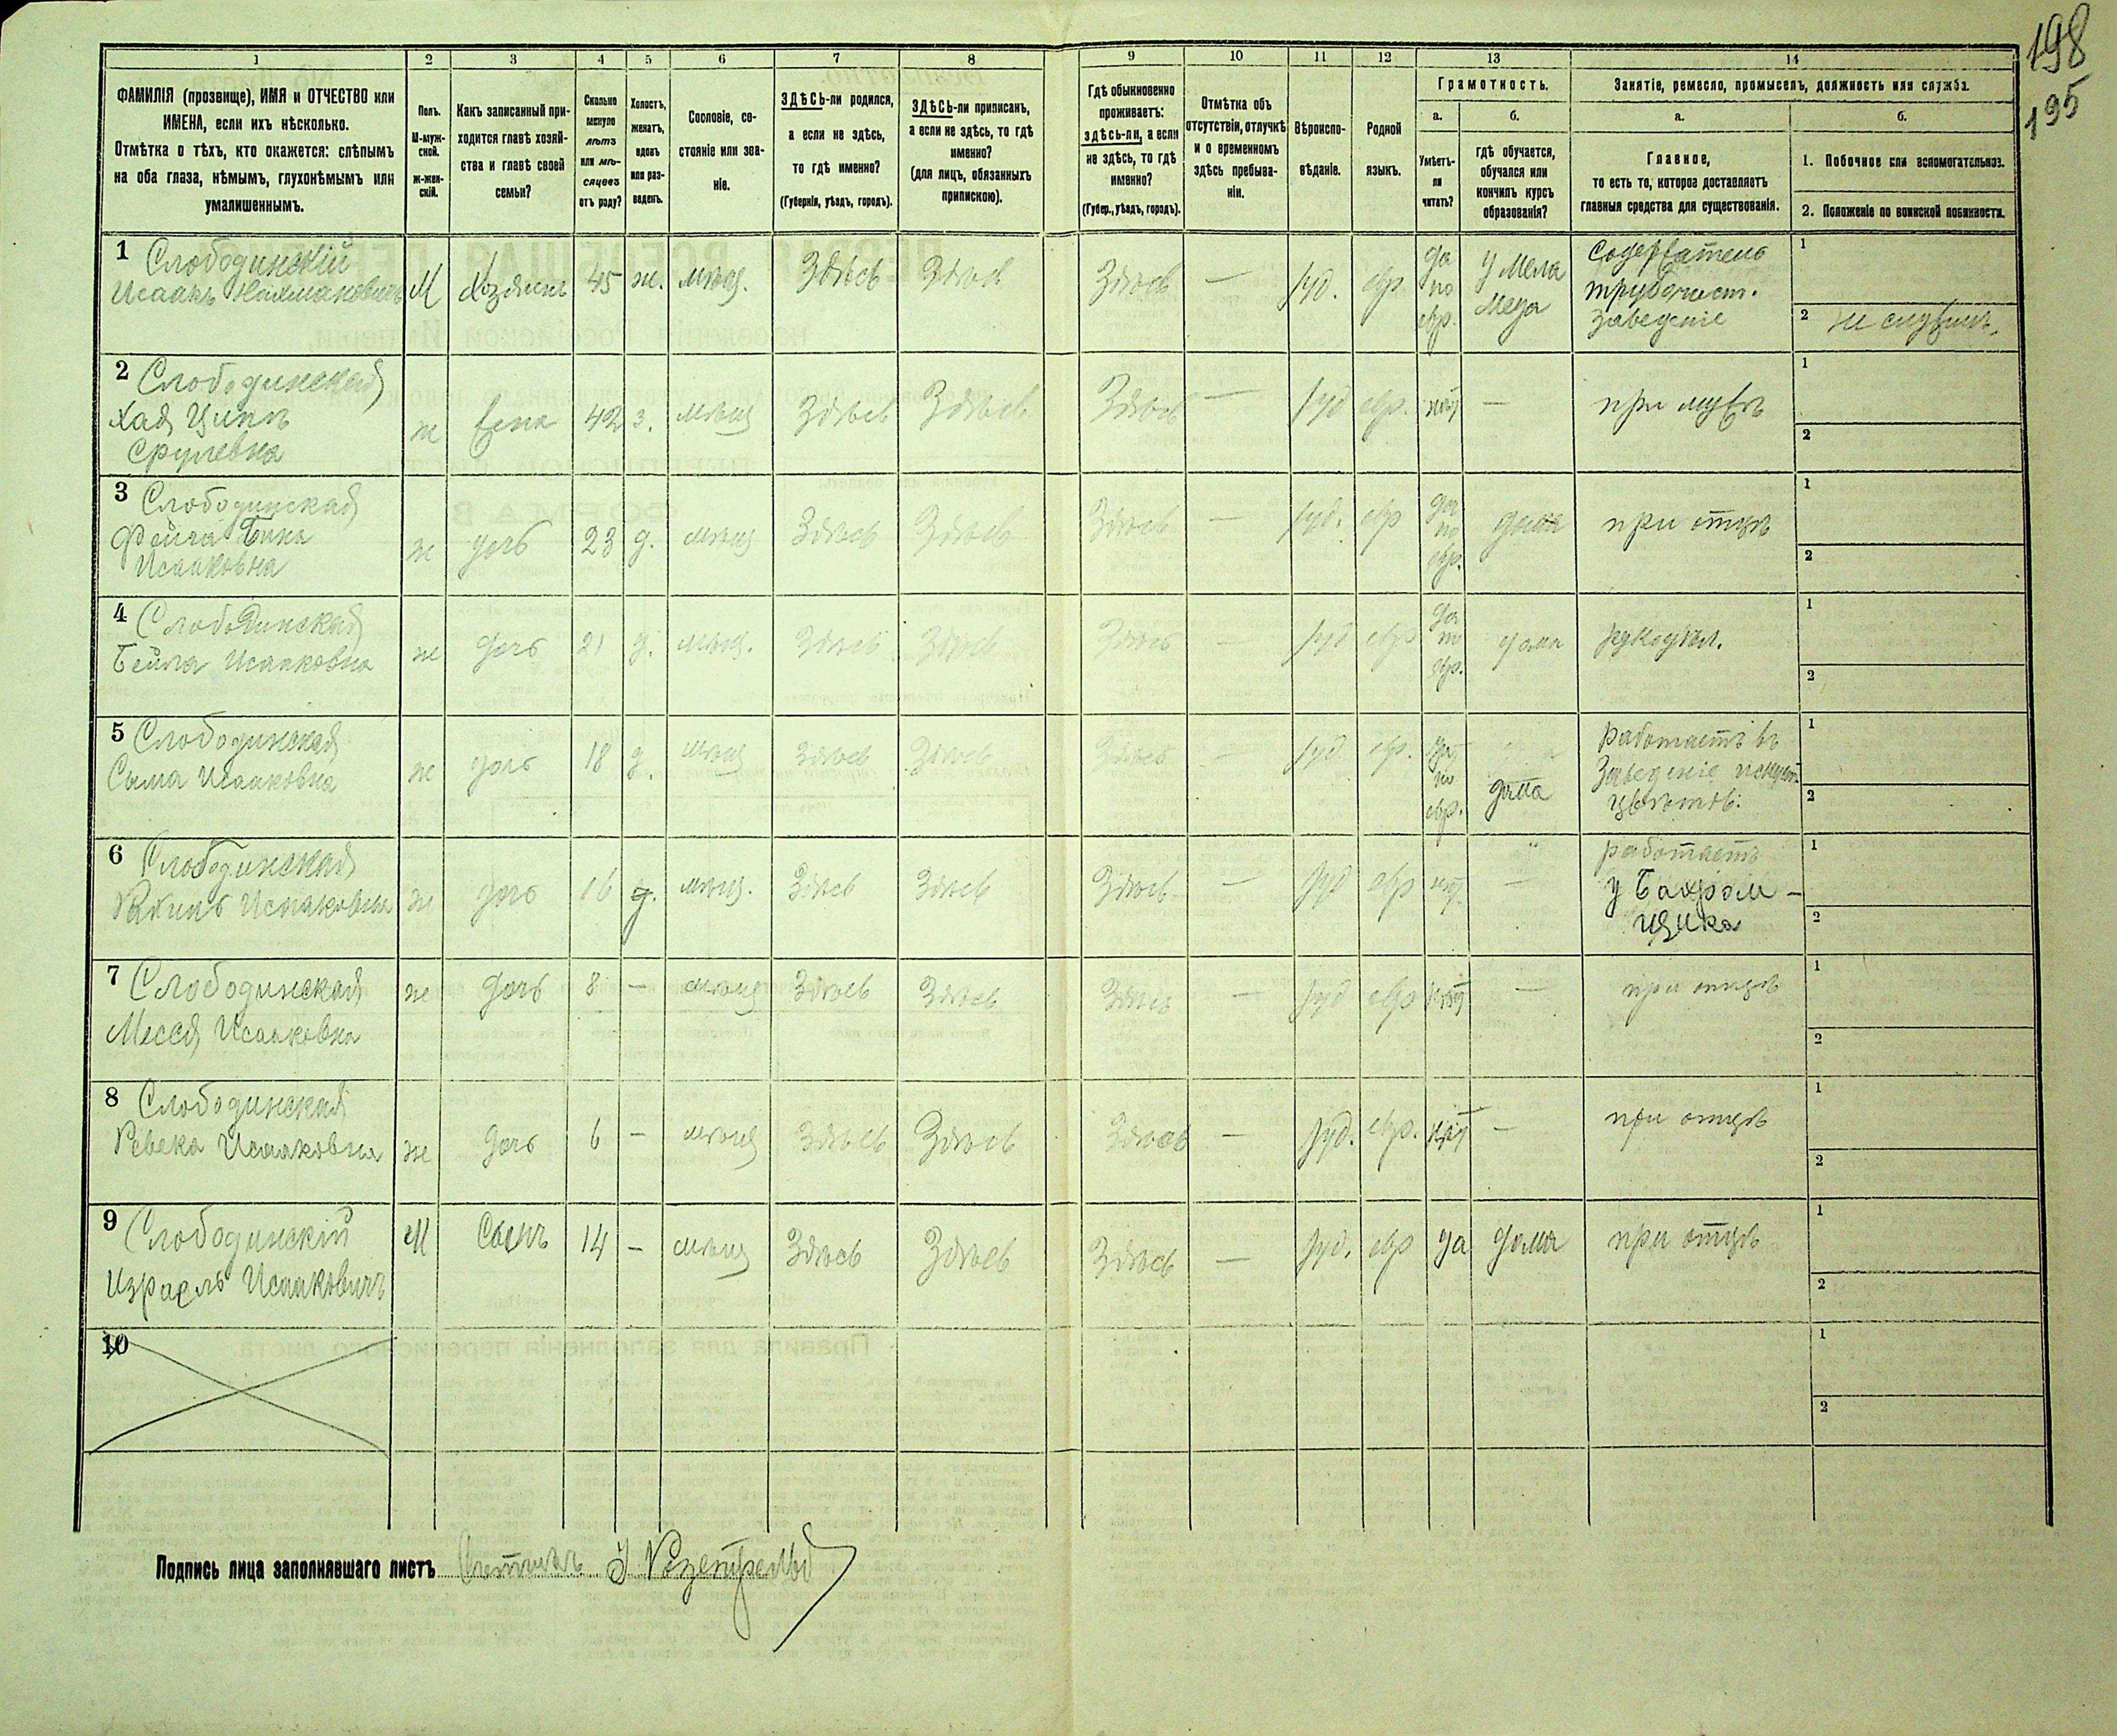 198
195
1
2
3
4
5
6
7
8
9
10
11
12
13
14
ФАМИЛІЯ (прозвище), ИМЯ и ОТЧЕСТВО или
ИМЕНА, если ихъ нѣсколько.
Отмѣтка о тѣхъ, кто окажется: слѣпымъ
на оба глаза, нѣмымъ, глухонѣмымъ или
умалишеннымъ.
Полъ.
М-муж-
ской.
ж-жен-
скій.
Какъ записанный при-
ходится главѣ хозяй-
ства и главѣ своей
семьи?
Сколько
минуло
лѣтъ
или мѣ-
сяцевъ
отъ роду?
Холостъ,
женатъ,
вдовъ
или раз-
веденъ.
Сословіе, со-
стояніе или зва-
ніе.
ЗДѢСЬ-ли родился,
а если не здѣсь,
то гдѣ именно?
(Губернія, уѣздъ, городъ).
ЗДѢСЬ-ли приписанъ,
а если не здѣсь, то гдѣ
именно?
(для лицъ, обязанныхъ
припискою).
Гдѣ обыкновенно
проживаетъ:
здѣсь-ли, а если
не здѣсь, то гдѣ
именно?
(Губер., уѣздъ, городъ).
Отмѣтка объ
отсутствіи, отлучкѣ
и о временномъ
здѣсь пребыва-
ніи.
Вѣроиспо-
вѣданіе.
Родной
языкъ.
Грамотность.
а.
Умѣетъ-
ли
читать?
б.
гдѣ обучается,
обучался или
кончилъ курсъ
образованія?
Занятіе, ремесло, промыселъ, должность или служба.
а.
Главное,
то есть то, которое доставляетъ
главныя средства для существованія.
б.
1. Побочное или вспомогательное.
2. Положеніе по воинской повинности.
1 Слободинскій
Исаакъ Нахмановичъ М Хозяинъ 45 ж. мѣщ. Здѣсь Здѣсь Здѣсь — Іуд. евр да
по
евр. у Мела
меда Содержатель
трубочист.
заведеніе 1
2 не служилъ
2 Слободинская
Хая Ципа
Срулевна ж жена 42 з. мѣщ Здѣсь Здѣсь Здѣсь — Іуд евр. нѣт — при мужѣ 1
2
3 Слободинская
Фейга Бина
Исааковна ж дочь 23 д. мѣщ Здѣсь Здѣсь Здѣсь — Іуд. евр да
по
евр. дома при отцѣ 1
2
4 Слободинская
Бейла Исааковна ж дочь 21 д. мѣщ. Здѣсь Здѣсь Здѣсь — Іуд евр да
по
евр. дома рукодѣл. 1
2
5 Слободинская
Сыма Исааковна ж дочь 18 д. мѣщ Здѣсь Здѣсь Здѣсь — Іуд евр. да
по
евр. дома Работаетъ въ
Заведеніе искуст
цвѣтовъ. 1
2
6 Слободинская
Исааковна ж дочь 16 д. мѣщ. Здѣсь Здѣсь Здѣсь — Іуд евр нѣт — работаетъ
у Бахром-
щика 1
2
7 Слободинская
Месся Исааковна ж дочь 8 — мѣщ Здѣсь Здѣсь Здѣсь — Іуд евр нѣт — при отцѣ 1
2
8 Слободинская
Ревека Исааковна ж дочь 6 — мѣщ Здѣсь Здѣсь Здѣсь — Іуд. евр. нѣт — при отцѣ 1
2
9 Слободинскій
Израель Исааковичъ М Сынъ 14 — мѣщ Здѣсь Здѣсь Здѣсь — Іуд. евр да дома при отцѣ 1
2
10 1
2
Подпись лица заполнявшаго листъ Счетчикъ Розенфельд